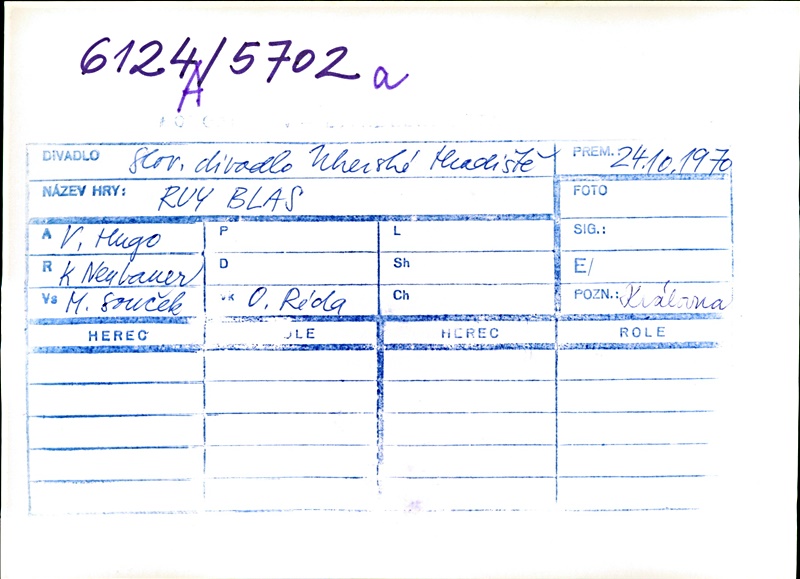 6124/5702 a
A
DIVADLO Slov. divadlo Uherské Hradiště PREM.: 24.10.1970
NÁZEV HRY: RUY BLAS FOTO
A V. Hugo P L SIG.:
R K Neubauer D Sh E/
Vs M. Souček Vk O. Réda Ch POZN.: Královna
HEREC ROLE HEREC ROLE